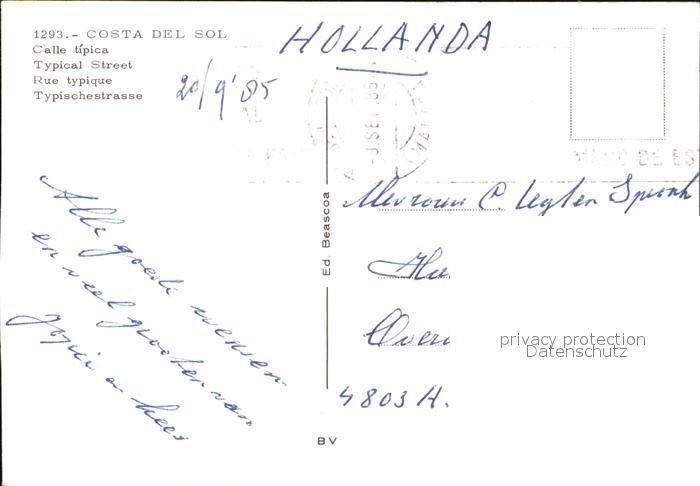 1293.- COSTA DEL SOL
Calle típica
Typical Street
Rue typique
Typischestrasse
HOLLANDA
20/9'85
Alle goede wensen
en veel groeten van
en Kees
Ed. Beascoa
Mevrouw C.
4803 H.
privacy protection
Datenschutz
BV